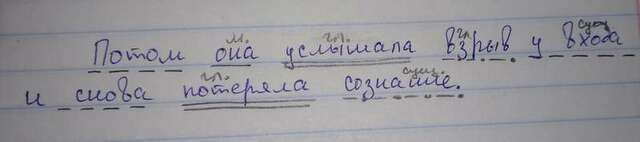 м. гл. гл. сущ
Потом она услышала взрыв у входа
гл. сущ.
и снова потеряла сознание.